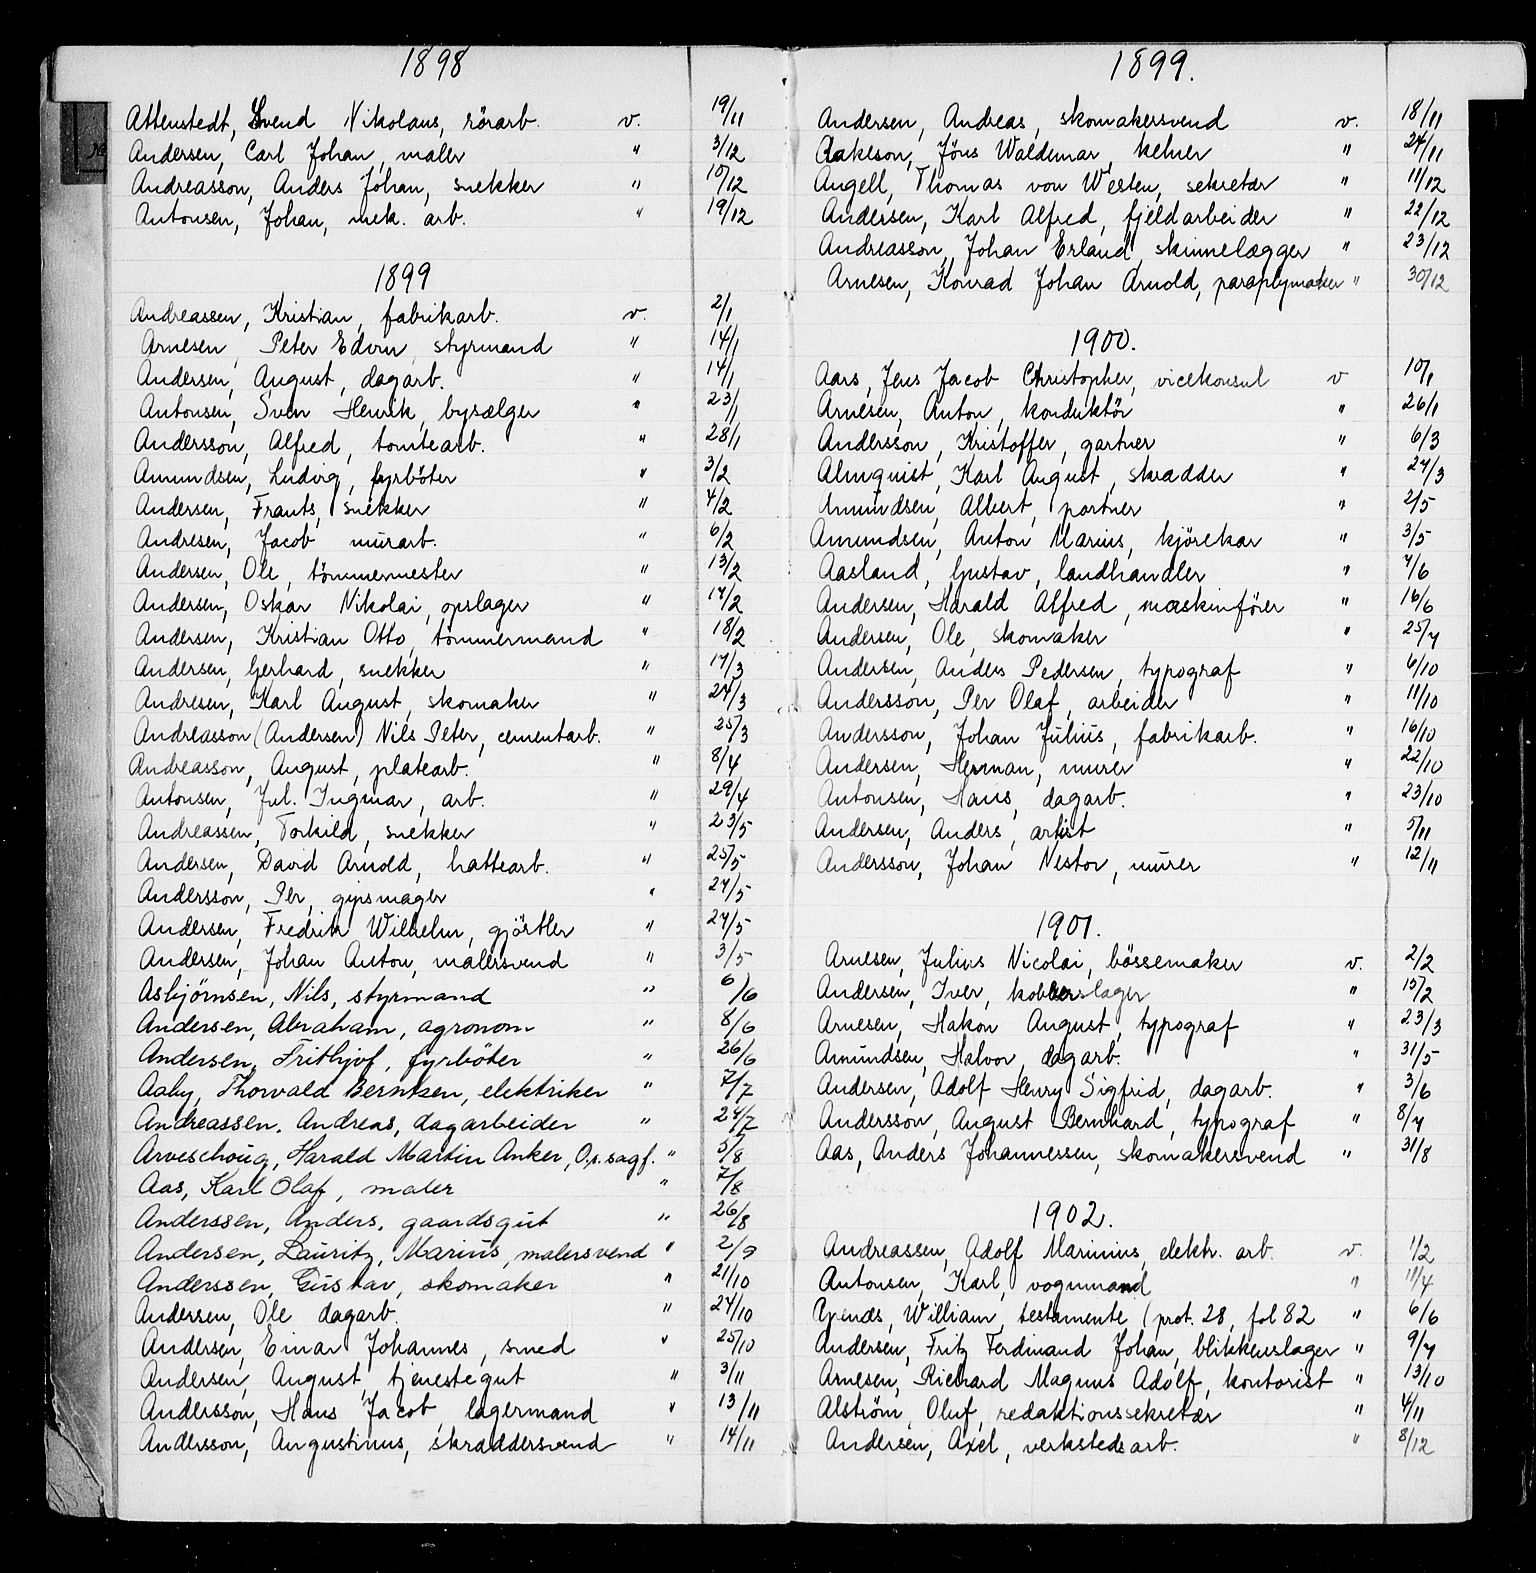 1898
Attenstedt, Svend Nikolaus, rörarb. v. 19/11
Andersen, Carl Johan, maler " 3/12
Andreasson, Anders Johan, snekker " 10/12
Antonsen, Johan, mek. arb. " 19/12
1899
Andreassen, Kristian, fabrikarb. v. 2/1
Arnesen, Peter Edvin, styrmand " 14/1
Andersen, August, dagarb. " 14/1
Antonsen, Sven Henrik, bysælger " 23/1
Andersson, Alfred, tomtearb. " 28/1
Amundsen, Ludvig, fyrböter " 3/2
Andersen, Frants, snekker " 4/2
Andresen, Jacob murarb. " 6/2
Andersen, Ole, tömmermester " 13/2
Andersen, Oskar Nikolai, opslager " 17/2
Andersen, Kristian Otto, tömmermand " 18/2
Andersen, Gerhard, snekker " 17/3
Andresen, Karl August, skomaker " 24/3
Andreasson (Andersen) Nils Peter, cementarb. " 25/3
Andreasson, August, platearb. " 8/4
Antonsen, Jul. Ingmar, arb. " 29/4
Andreassen, Torkild, snekker " 23/5
Andersen, David Arnold, hattearb. " 25/5
Andersson, Per, gipsmager " 27/5
Andersen, Fredrik Wilhelm, gjörtler " 27/5
Andersen, Johan Anton, malersvend " 3/5
Asbjørnsen, Nils, styrmand " 6/6
Andersen, Abraham, agronom " 8/6
Andersen, Frithjof, fyrböter " 26/6
Aaby, Thorvald Berntsen, elektriker " 7/7
Andreassen, Andreas, dagarbeider " 24/7
Arveschoug, Harald Martin Anker, O.r.sagf. " 5/8
Aas, Karl Olaf, maler " 7/8
Anderssen, Anders, gaardsgut " 26/8
Andersen, Lauritz, Marius, malersvend " 2/9
Anderssen, Gustav, skomaker " 21/10
Andersen, Ole dagarb. " 24/10
Andersen, Einar Johannes, smed " 25/10
Andersen, August, tjenestegut " 3/11
Andersson, Hans Jacob, lagermand " 13/11
Andersson, Augustinus, skræddersvend " 14/11
1899.
Andersen, Andreas, skomakersvend v. 18/11
Aakeson, Jöns Waldemar, kelner " 24/11
Angell, Thomas von Westen, sekretær " 11/12
Andersen, Karl Alfred, fjeldarbeider " 22/12
Andreasson, Johan Erland, skinnelægger " 23/12
Arnesen, Konrad Johan Arnold, paraplymaker " 30/12
1900.
Aars, Jens Jacob Christopher, vicekonsul v 10/1
Arnesen, Anton, konduktör " 26/1
Andersson, Kristoffer, gartner " 6/3
Almquist, Karl August, skrædder " 27/3
Amundsen, Albert, portner " 2/5
Amundsen, Anton Marius, kjörekar " 3/5
Aasland, Gustav, landhandler " 7/6
Andersen, Harald Alfred, maskinförer " 16/6
Andersen, Ole, skomaker " 25/7
Andersen, Anders Pedersen, typograf " 6/10
Andersson, Per Olaf, arbeider " 11/10
Andersson, Johan Julius, fabrikarb. " 16/10
Andersen, Herman, murer " 22/10
Antonsen, Hans, dagarb. " 23/10
Andersen, Anders, artist " 5/11
Andersson, Johan Nestor, murer " 12/11
1901.
Arnesen, Julius Nicolai, bössemaker v. 2/2
Andersen, Iver, kobberslager " 15/2
Arnesen, Hakon August, typograf " 23/3
Amundsen, Halvor, dagarb. " 31/5
Andersen, Adolf Henry Sigfrid, dagarb. " 3/6
Andersson, August Bernhard, typograf " 8/7
Aas, Anders Johannessen, skomakersvend " 31/8
1902.
Andreassen, Adolf Marinius, elektr. arb. v. 1/2
Antonsen, Karl, vognmand " 11/4
William, testamente (prot. 28, fol 82 " 6/6
Andersen, Fritz Ferdinand Johan, blikkenslager " 9/7
Arnesen, Richard Magnus Adolf, kontorist " 13/10
Alstrøm, Oluf, redaktionssekretær " 4/11
Andersen, Axel, verkstedsarb. " 8/12